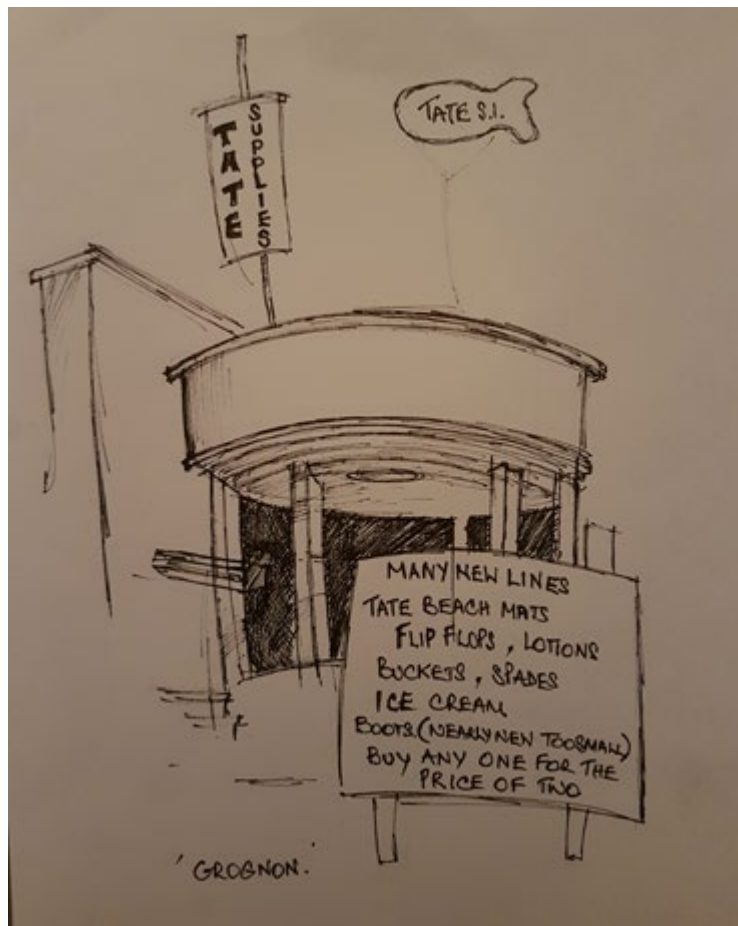 TATE
SUPPLIES
TATE S.I.
MANY NEW LINES
TATE BEACH MATS
FLIP FLOPS, LOTIONS
BUCKETS, SPADES
ICE CREAM
BOOTS. (NEARLY NEW TOO SMALL)
BUY ANY ONE FOR THE
PRICE OF TWO
'GROGNON.'